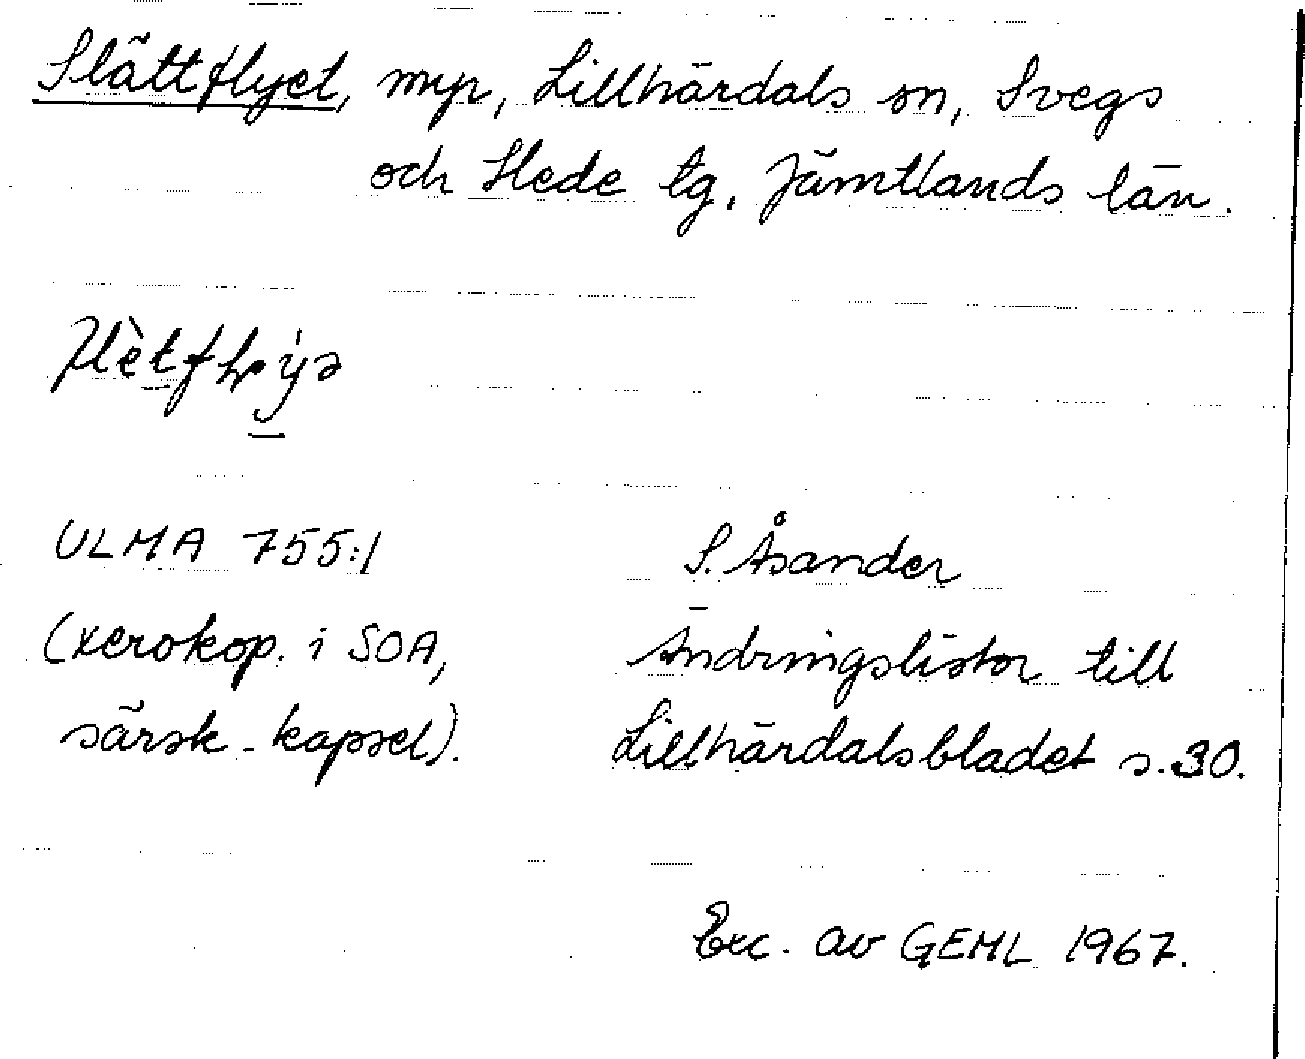 Slättflyet, myr, Lillhärdals sn, Svegs
och Hede tg, Jämtlands län.
ULMA 755:1
S. Åsander
(xerokop. i SOA,
Ändringslistor till
särsk. kapsel).
Lillhärdalsbladet s. 30.
Exc. av GEHL 1967.